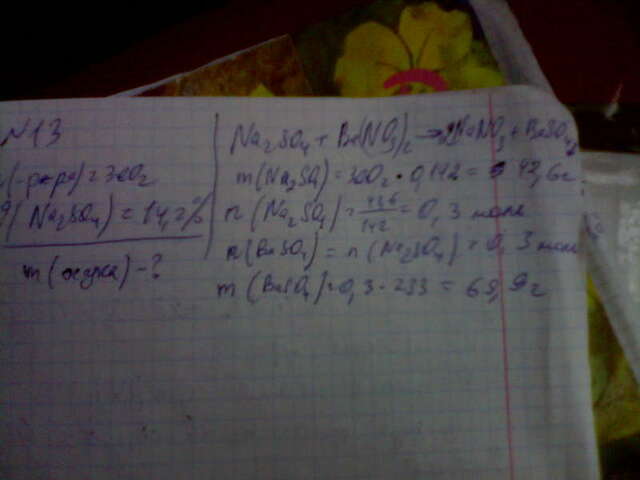 N13
m(-ра) = 300г
(Na₂SO₄) = 14,2%
m(осадка) - ?
Na₂SO₄ + Ba(NO₃)₂ → 2NaNO₃ + BaSO₄
m(Na₂SO₄) = 300г · 0,142 = 42,6г
n(Na₂SO₄) = 42,6/142 = 0,3 моль
n(BaSO₄) = n(Na₂SO₄) = 0,3 моль
m(BaSO₄) = 0,3 · 233 = 69,9г